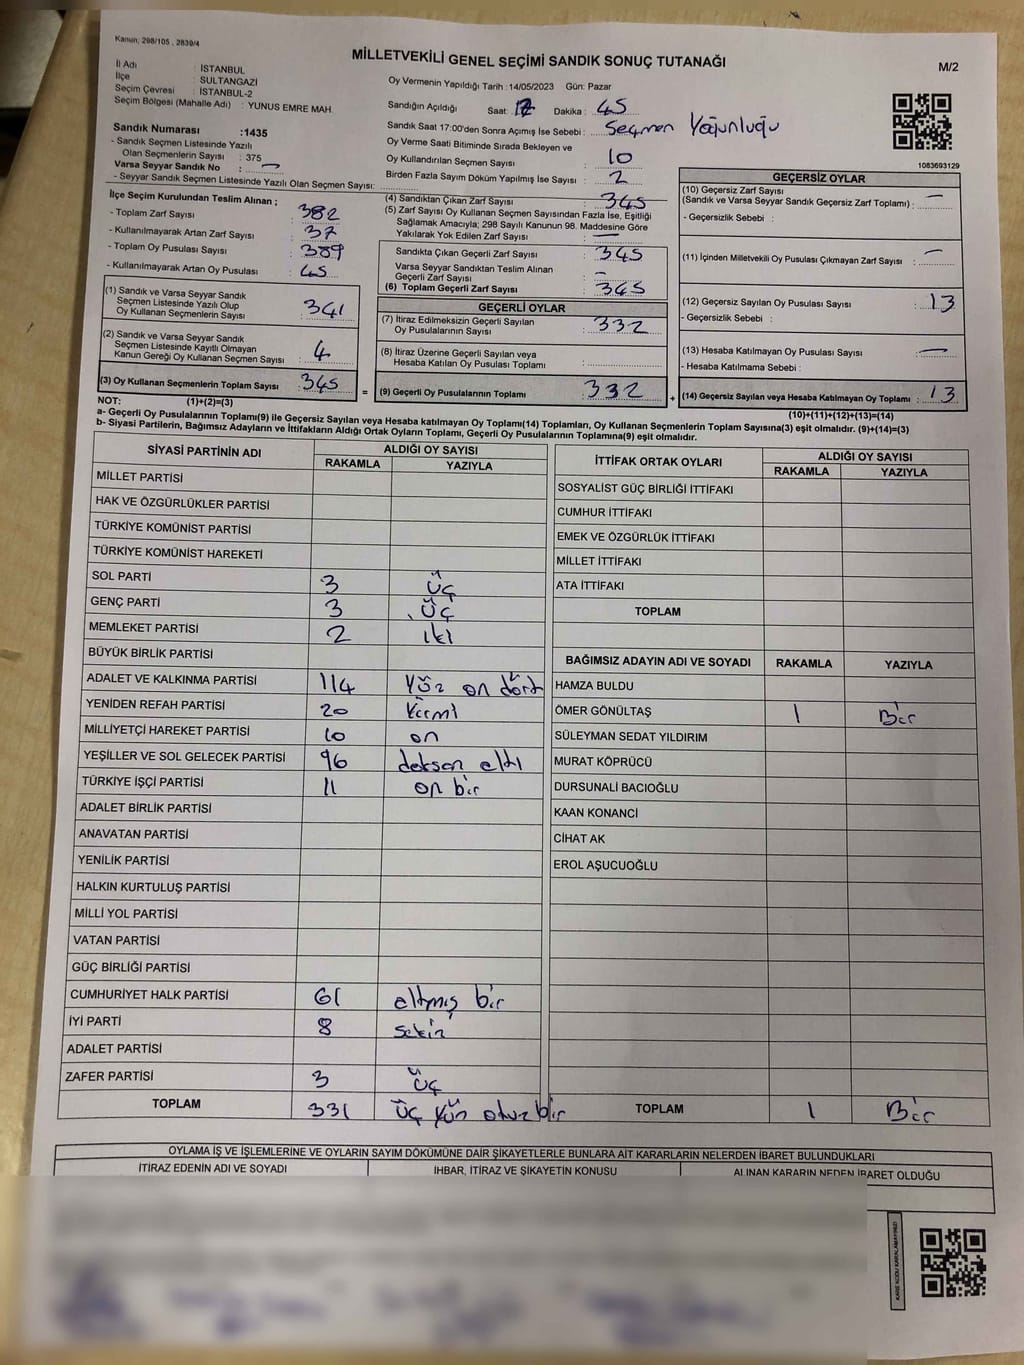 Kanun, 298/105 , 2839/4
MİLLETVEKİLİ GENEL SEÇİMİ SANDIK SONUÇ TUTANAĞI
M/2
İl Adı : İSTANBUL
İlçe : SULTANGAZİ
Seçim Çevresi : İSTANBUL-2
Seçim Bölgesi (Mahalle Adı) : YUNUS EMRE MAH.
Oy Vermenin Yapıldığı Tarih : 14/05/2023 Gün: Pazar
Sandığın Açıldığı Saat: Dakika : 45
Sandık Saat 17:00'den Sonra Açımış İse Sebebi : Seçmen Yoğunluğu
Oy Verme Saati Bitiminde Sırada Bekleyen ve
Oy Kullandırılan Seçmen Sayısı : 10
Birden Fazla Sayım Döküm Yapılmış İse Sayısı : 2
1083693129
Sandık Numarası :1435
- Sandık Seçmen Listesinde Yazılı
Olan Seçmenlerin Sayısı : 375
Varsa Seyyar Sandık No : —
- Seyyar Sandık Seçmen Listesinde Yazılı Olan Seçmen Sayısı:
İlçe Seçim Kurulundan Teslim Alınan ;
- Toplam Zarf Sayısı : 382
- Kullanılmayarak Artan Zarf Sayısı : 37
- Toplam Oy Pusulası Sayısı : 389
- Kullanılmayarak Artan Oy Pusulası : 45
(1) Sandık ve Varsa Seyyar Sandık
Seçmen Listesinde Yazılı Olup
Oy Kullanan Seçmenlerin Sayısı : 341
(2) Sandık ve Varsa Seyyar Sandık
Seçmen Listesinde Kayıtlı Olmayan
Kanun Gereği Oy Kullanan Seçmen Sayısı : 4
(3) Oy Kullanan Seçmenlerin Toplam Sayısı : 345
(4) Sandıktan Çıkan Zarf Sayısı : 345
(5) Zarf Sayısı Oy Kullanan Seçmen Sayısından Fazla İse, Eşitliği
Sağlamak Amacıyla; 298 Sayılı Kanunun 98. Maddesine Göre
Yakılarak Yok Edilen Zarf Sayısı : —
Sandıkta Çıkan Geçerli Zarf Sayısı : 345
Varsa Seyyar Sandıktan Teslim Alınan
Geçerli Zarf Sayısı : —
(6) Toplam Geçerli Zarf Sayısı : 345
GEÇERLİ OYLAR
(7) İtiraz Edilmeksizin Geçerli Sayılan
Oy Pusulalarının Sayısı : 332
(8) İtiraz Üzerine Geçerli Sayılan veya
Hesaba Katılan Oy Pusulası Toplamı :
= (9) Geçerli Oy Pusulalarının Toplamı : 332
GEÇERSİZ OYLAR
(10) Geçersiz Zarf Sayısı
(Sandık ve Varsa Seyyar Sandık Geçersiz Zarf Toplamı) : —
- Geçersizlik Sebebi :
(11) İçinden Milletvekili Oy Pusulası Çıkmayan Zarf Sayısı : —
(12) Geçersiz Sayılan Oy Pusulası Sayısı : 13
- Geçersizlik Sebebi :
(13) Hesaba Katılmayan Oy Pusulası Sayısı : —
- Hesaba Katılmama Sebebi :
+ (14) Geçersiz Sayılan veya Hesaba Katılmayan Oy Toplamı : 13
NOT: (1)+(2)=(3) (10)+(11)+(12)+(13)=(14)
a- Geçerli Oy Pusulalarının Toplamı(9) ile Geçersiz Sayılan veya Hesaba katılmayan Oy Toplamı(14) Toplamları, Oy Kullanan Seçmenlerin Toplam Sayısına(3) eşit olmalıdır. (9)+(14)=(3)
b- Siyasi Partilerin, Bağımsız Adayların ve İttifakların Aldığı Ortak Oyların Toplamı, Geçerli Oy Pusulalarının Toplamına(9) eşit olmalıdır.
SİYASİ PARTİNİN ADI ALDIĞI OY SAYISI
RAKAMLA YAZIYLA
MİLLET PARTİSİ
HAK VE ÖZGÜRLÜKLER PARTİSİ
TÜRKİYE KOMÜNİST PARTİSİ
TÜRKİYE KOMÜNİST HAREKETİ
SOL PARTİ 3 üç
GENÇ PARTİ 3 üç
MEMLEKET PARTİSİ 2 iki
BÜYÜK BİRLİK PARTİSİ
ADALET VE KALKINMA PARTİSİ 114 Yüz on dört
YENİDEN REFAH PARTİSİ 20 Yirmi
MİLLİYETÇİ HAREKET PARTİSİ 10 on
YEŞİLLER VE SOL GELECEK PARTİSİ 96 doksan altı
TÜRKİYE İŞÇİ PARTİSİ 11 on bir
ADALET BİRLİK PARTİSİ
ANAVATAN PARTİSİ
YENİLİK PARTİSİ
HALKIN KURTULUŞ PARTİSİ
MİLLİ YOL PARTİSİ
VATAN PARTİSİ
GÜÇ BİRLİĞİ PARTİSİ
CUMHURİYET HALK PARTİSİ 61 altmış bir
İYİ PARTİ 8 sekiz
ADALET PARTİSİ
ZAFER PARTİSİ 3 üç
TOPLAM 331 üç yüz otuz bir
İTTİFAK ORTAK OYLARI ALDIĞI OY SAYISI
RAKAMLA YAZIYLA
SOSYALİST GÜÇ BİRLİĞİ İTTİFAKI
CUMHUR İTTİFAKI
EMEK VE ÖZGÜRLÜK İTTİFAKI
MİLLET İTTİFAKI
ATA İTTİFAKI
TOPLAM
BAĞIMSIZ ADAYIN ADI VE SOYADI RAKAMLA YAZIYLA
HAMZA BULDU
ÖMER GÖNÜLTAŞ 1 Bir
SÜLEYMAN SEDAT YILDIRIM
MURAT KÖPRÜCÜ
DURSUNALİ BACIOĞLU
KAAN KONANCİ
CİHAT AK
EROL AŞUCUOĞLU
TOPLAM 1 Bir
OYLAMA İŞ VE İŞLEMLERİNE VE OYLARIN SAYIM DÖKÜMÜNE DAİR ŞİKAYETLERLE BUNLARA AİT KARARLARIN NELERDEN İBARET BULUNDUKLARI
İTİRAZ EDENİN ADI VE SOYADI İHBAR, İTİRAZ VE ŞİKAYETİN KONUSU ALINAN KARARIN NEDEN İBARET OLDUĞU
KARE KODU KARALAMAYINIZ!